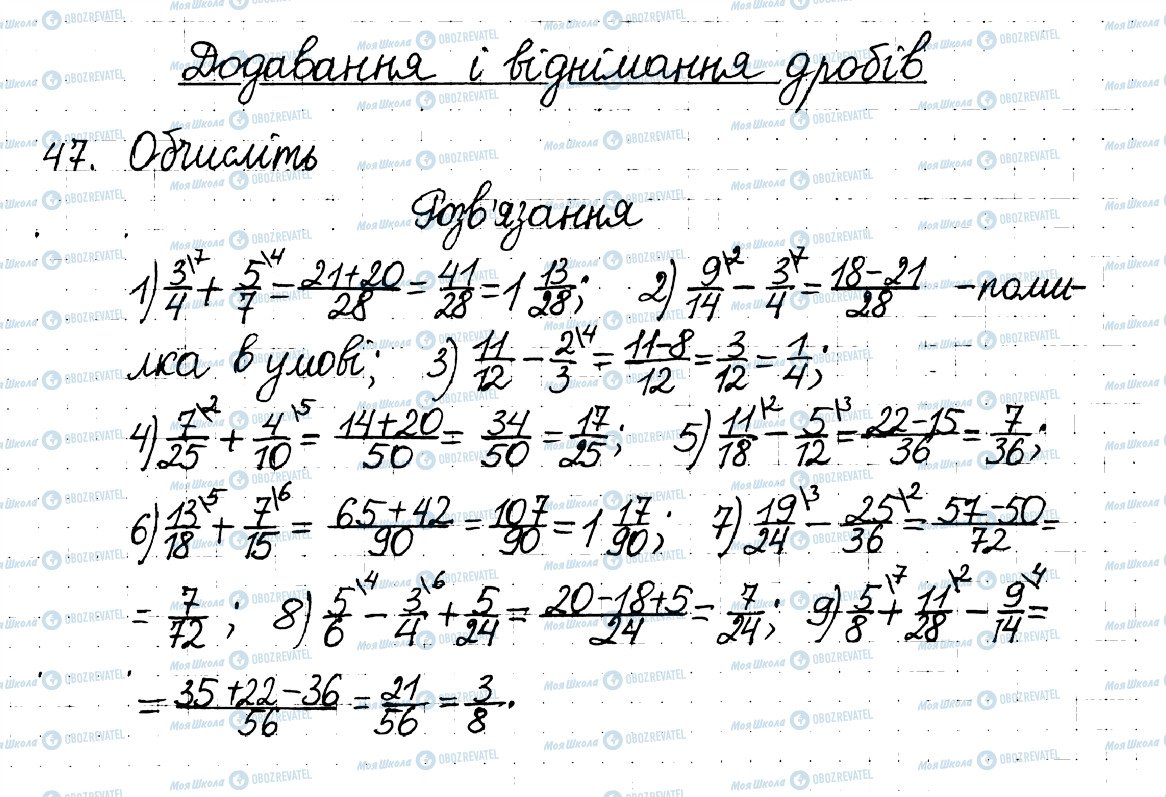 Додавання і віднімання дробів
47. Обчисліть
Розв'язання
1) 3\7/4 + 5\4/7 = 21+20/28 = 41/28 = 1 13/28; 2) 9\2/14 - 3\7/4 = 18-21/28 - поми-
лка в умові; 3) 11/12 - 2\4/3 = 11-8/12 = 3/12 = 1/4;
4) 7\2/25 + 4\5/10 = 14+20/50 = 34/50 = 17/25; 5) 11\2/18 - 5\3/12 = 22-15/36 = 7/36;
6) 13\5/18 + 7\6/15 = 65+42/90 = 107/90 = 1 17/90; 7) 19\3/24 - 25\2/36 = 57-50/72 =
= 7/72; 8) 5\4/6 - 3\6/4 + 5/24 = 20-18+5/24 = 7/24; 9) 5\7/8 + 11\2/28 - 9\4/14 =
= 35+22-36/56 = 21/56 = 3/8.
Моя Школа OBOZREVATEL